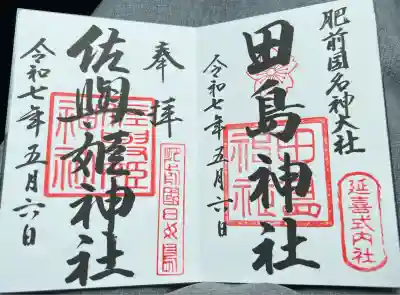 肥前国名神大社
田島神社
令和七年五月六日
延喜式内社
田島神社
奉拝
佐與姫神社
令和七年五月六日
佐與姫神社